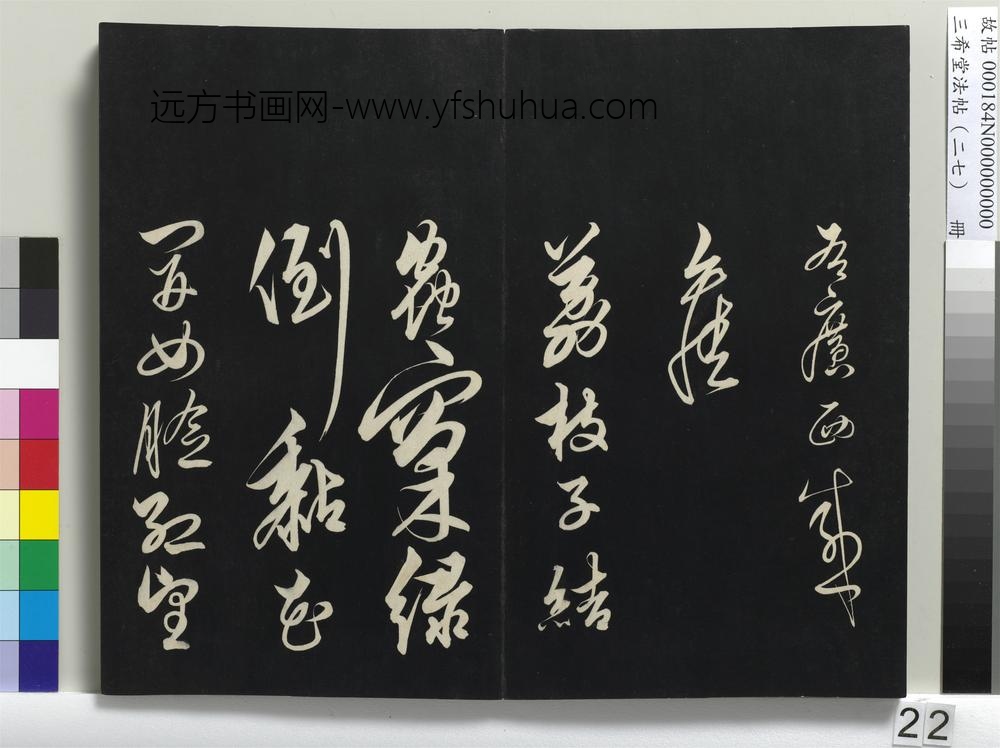 故帖 000184N000000000
三希堂法帖(二七) 冊
远方书画网-www.yfshuhua.com
廣西
荔枝子結
蟲窠綠
倒黏花
開女臉紅望
22